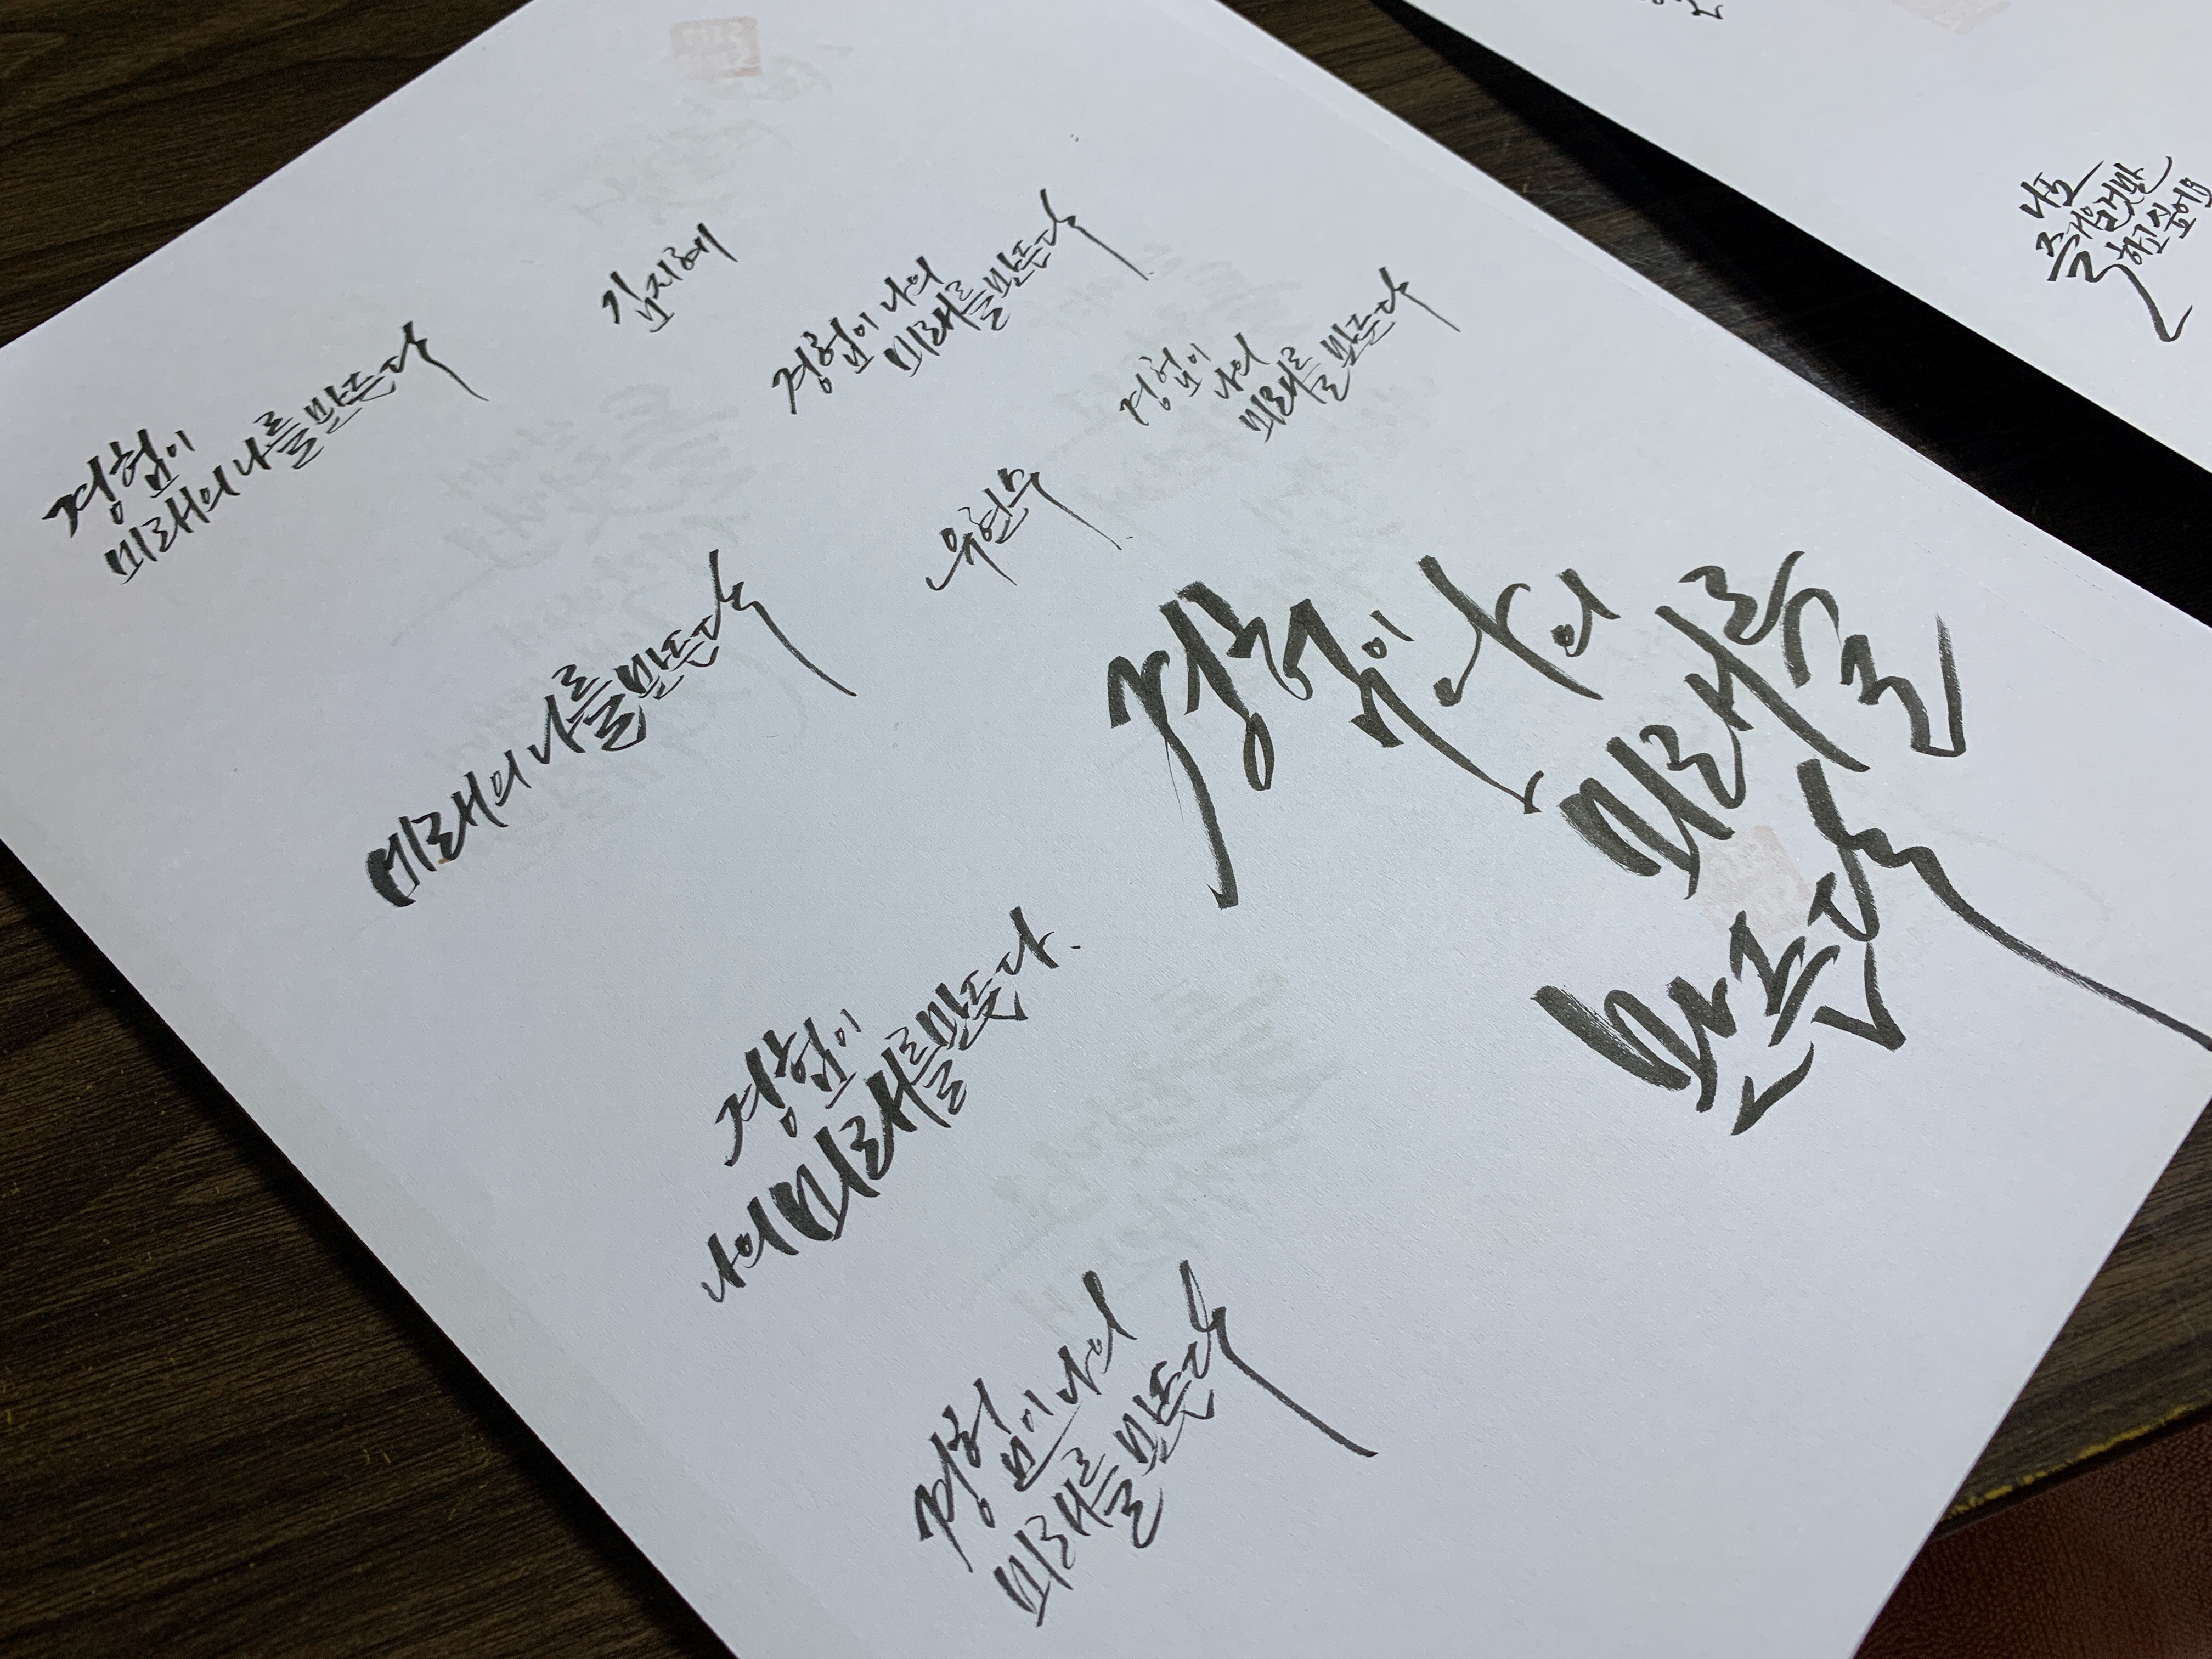 김지혜
경험이
미래의 나를 만든다
경험이 나의
미래를 만든다
경험이
나의
미래를 만든다
유현수
미래의 나를 만든다
경험이 나의
미래를
만든다
경험이
나의 미래를 만든다.
경험이 나의
미래를 만든다
나도
좋은 것만
하고 싶어요